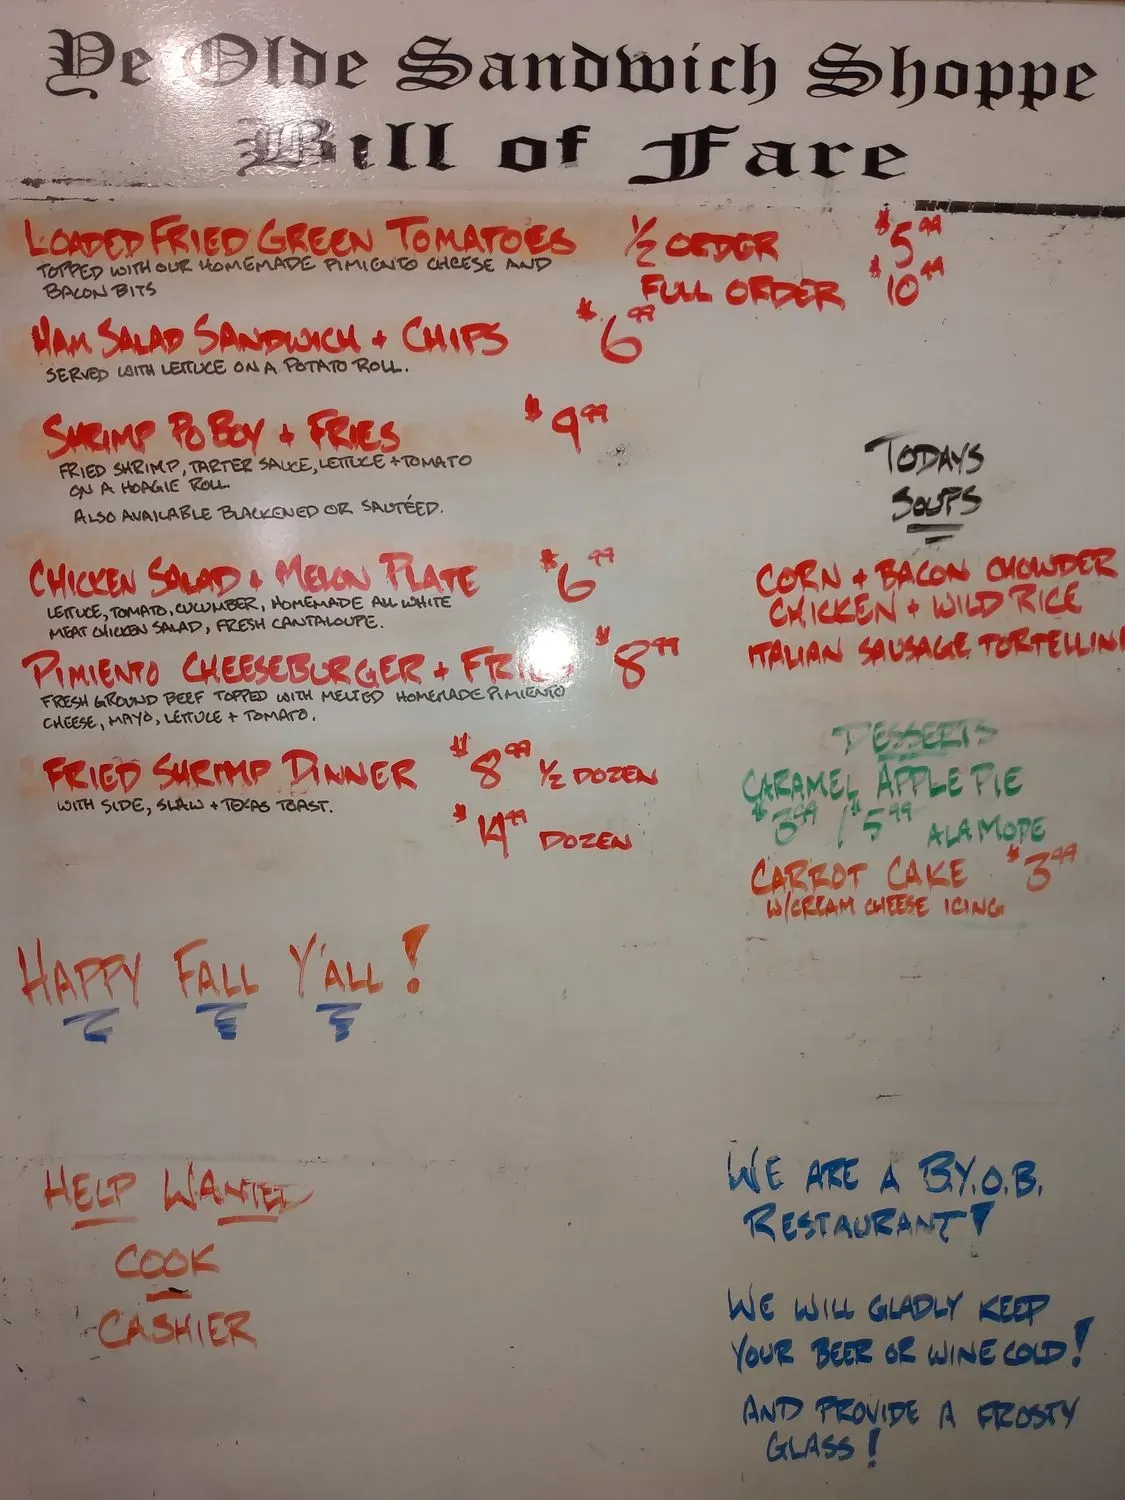 Ye Olde Sandwich Shoppe
Bill of Fare
LOADED FRIED GREEN TOMATOES 1/2 ORDER $5.99
TOPPED WITH OUR HOMEMADE PIMIENTO CHEESE AND
BACON BITS
FULL ORDER $10.99
HAM SALAD SANDWICH + CHIPS $6.99
SERVED WITH LETTUCE ON A POTATO ROLL.
SHRIMP PO BOY + FRIES $9.99
FRIED SHRIMP, TARTER SAUCE, LETTUCE + TOMATO
ON A HOAGIE ROLL.
ALSO AVAILABLE BLACKENED OR SAUTÉED.
CHICKEN SALAD + MELON PLATE $6.99
LETTUCE, TOMATO, CUCUMBER, HOMEMADE ALL WHITE
MEAT CHICKEN SALAD, FRESH CANTALOUPE.
PIMIENTO CHEESEBURGER + FRIES $8.99
FRESH GROUND BEEF TOPPED WITH MELTED HOMEMADE PIMIENTO
CHEESE, MAYO, LETTUCE + TOMATO.
FRIED SHRIMP DINNER $8.99 1/2 DOZEN
WITH SIDE, SLAW + TEXAS TOAST.
$14.99 DOZEN
TODAYS
SOUPS
CORN + BACON CHOWDER
CHICKEN + WILD RICE
ITALIAN SAUSAGE TORTELLINI
DESSERTS
CARAMEL APPLE PIE
$3.99 / $5.99 ALA MODE
CARROT CAKE $3.99
W/CREAM CHEESE ICING
HAPPY FALL Y'ALL!
HELP WANTED
COOK
CASHIER
WE ARE A B.Y.O.B.
RESTAURANT!
WE WILL GLADLY KEEP
YOUR BEER OR WINE COLD!
AND PROVIDE A FROSTY
GLASS!